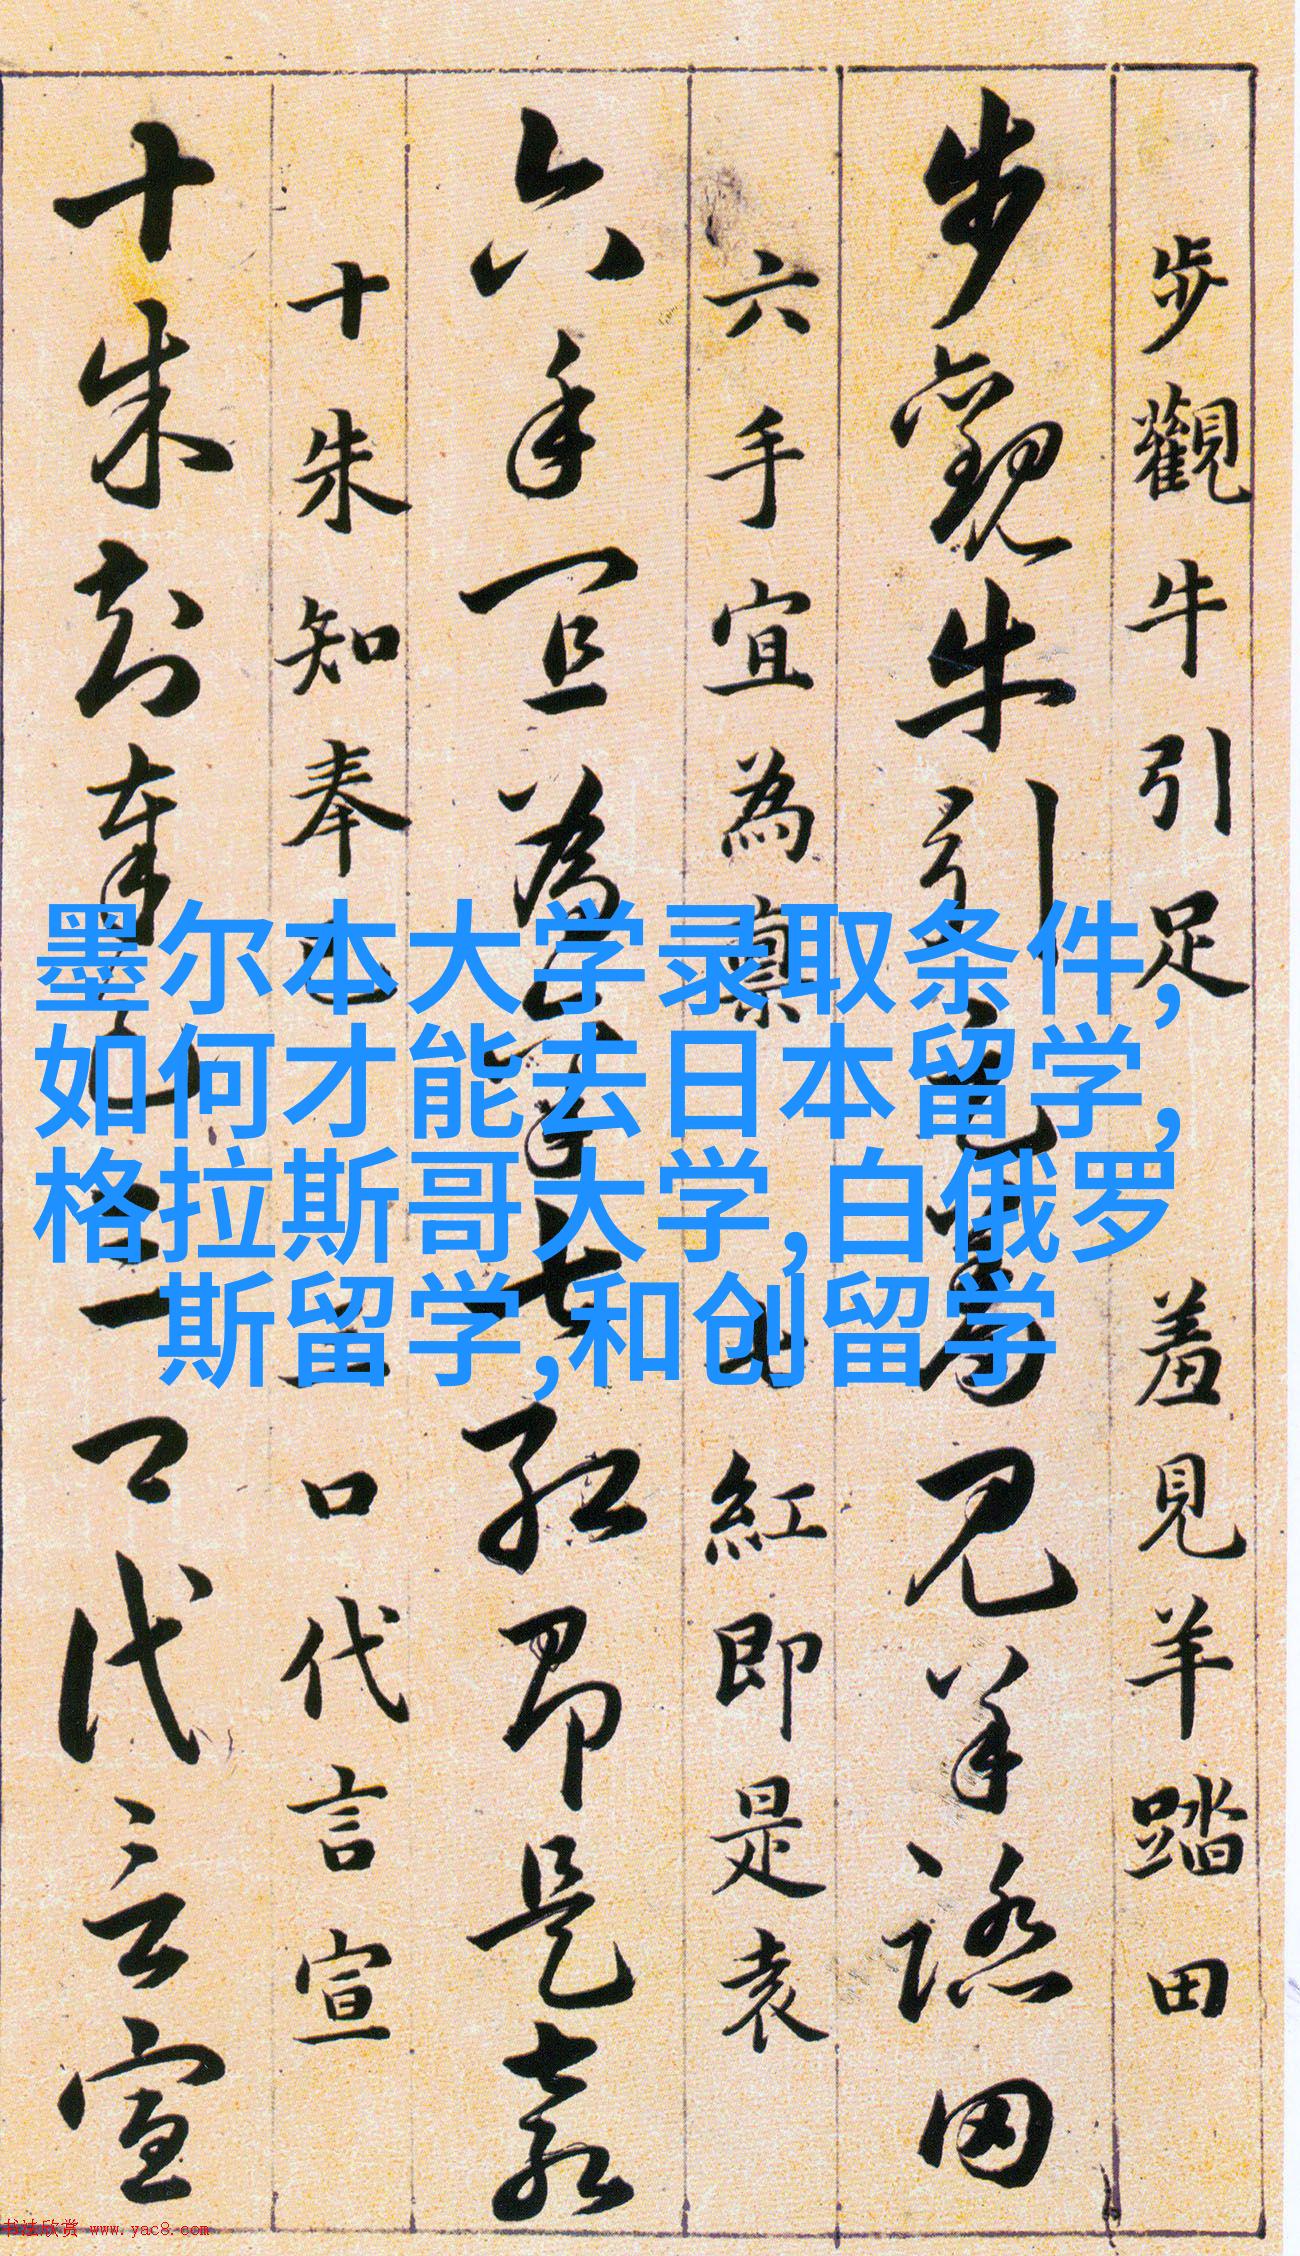 步觀牛引足 羞見羊踏田
步觀牛引足羞見羊踏田
六手宜為稟 七紅即是袁
六手宜為稟七紅即是袁
十朱知奉已 三口代言宣
十朱知奉已三口代言宣
墨尔本大学录取条件,
如何才能去日本留学,
格拉斯哥大学,白俄罗
斯留学,和创留学
书法欣赏 www.yac8.com